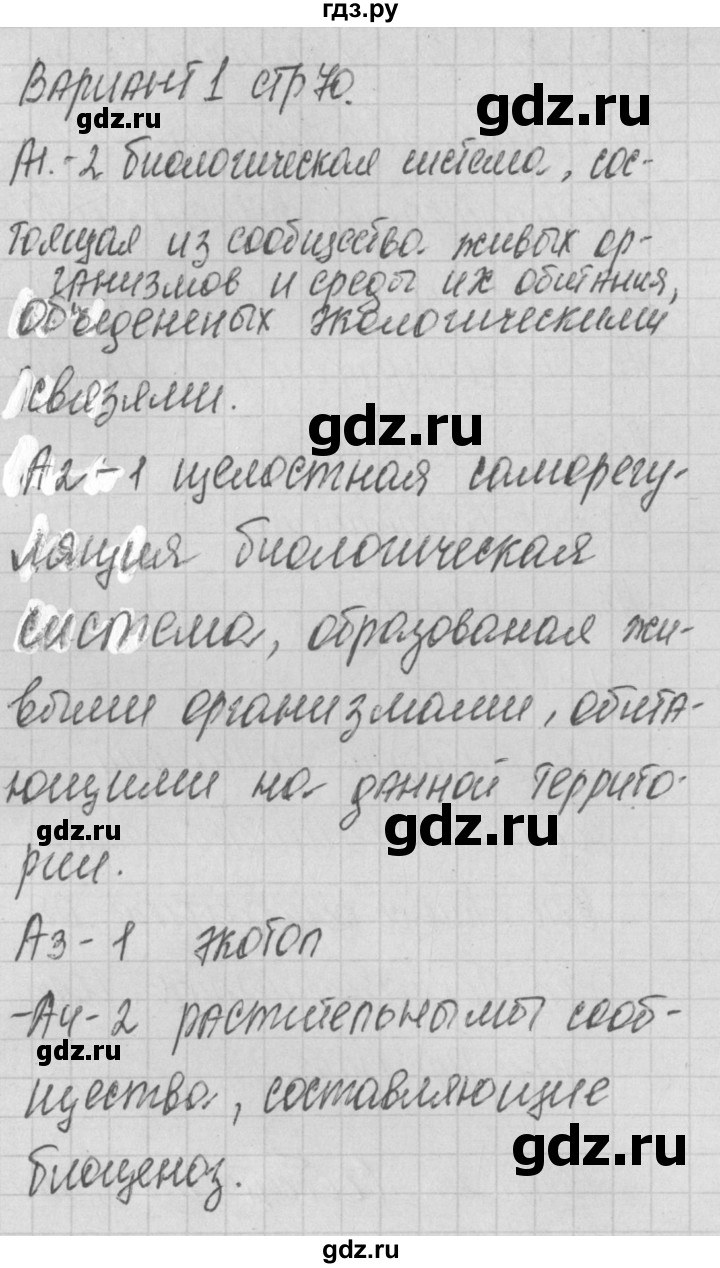 гдз.ру
Вариант 1 стр 70.
gdz.ru
gdz.ru
А1.-2 биологическая система, сос-
тоящая из сообщества живых ор-
ганизмов и среды их обитания,
объедененых экологическими
связями.
gdz.ru
А2-1 целостная саморегу-
ляция биологическая
система, образованая жи-
выми организмами, обита-
ющими на данной террито-
gdz.ru
gdz.ru
рии.
А3-1 экотоп
-А4-2 растительнымы сооб-
gdz.ru
щества, составляющие
gdz.ru
биоценоз.
gdz.ru